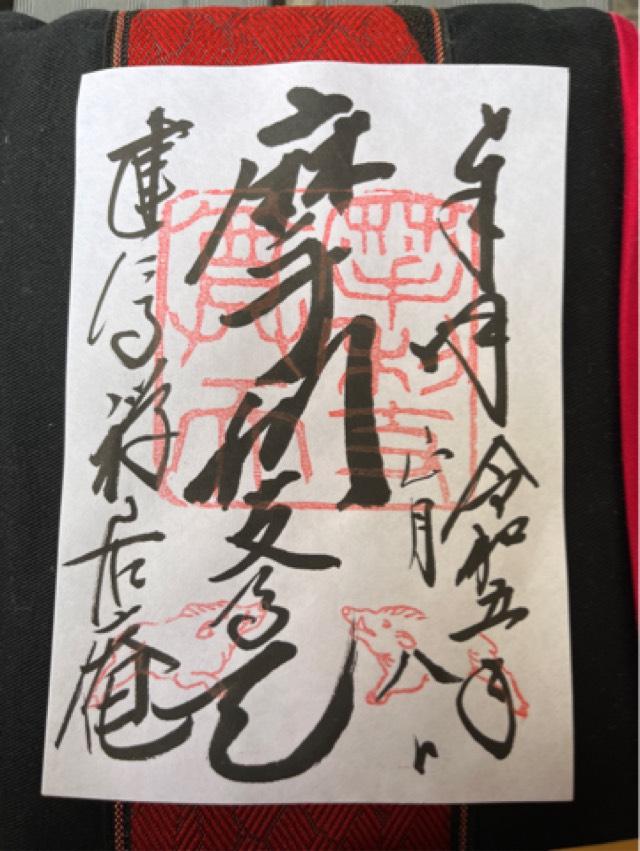 奉拝 令和五年
六月八日
摩利支尊天
建仁寺禅居庵